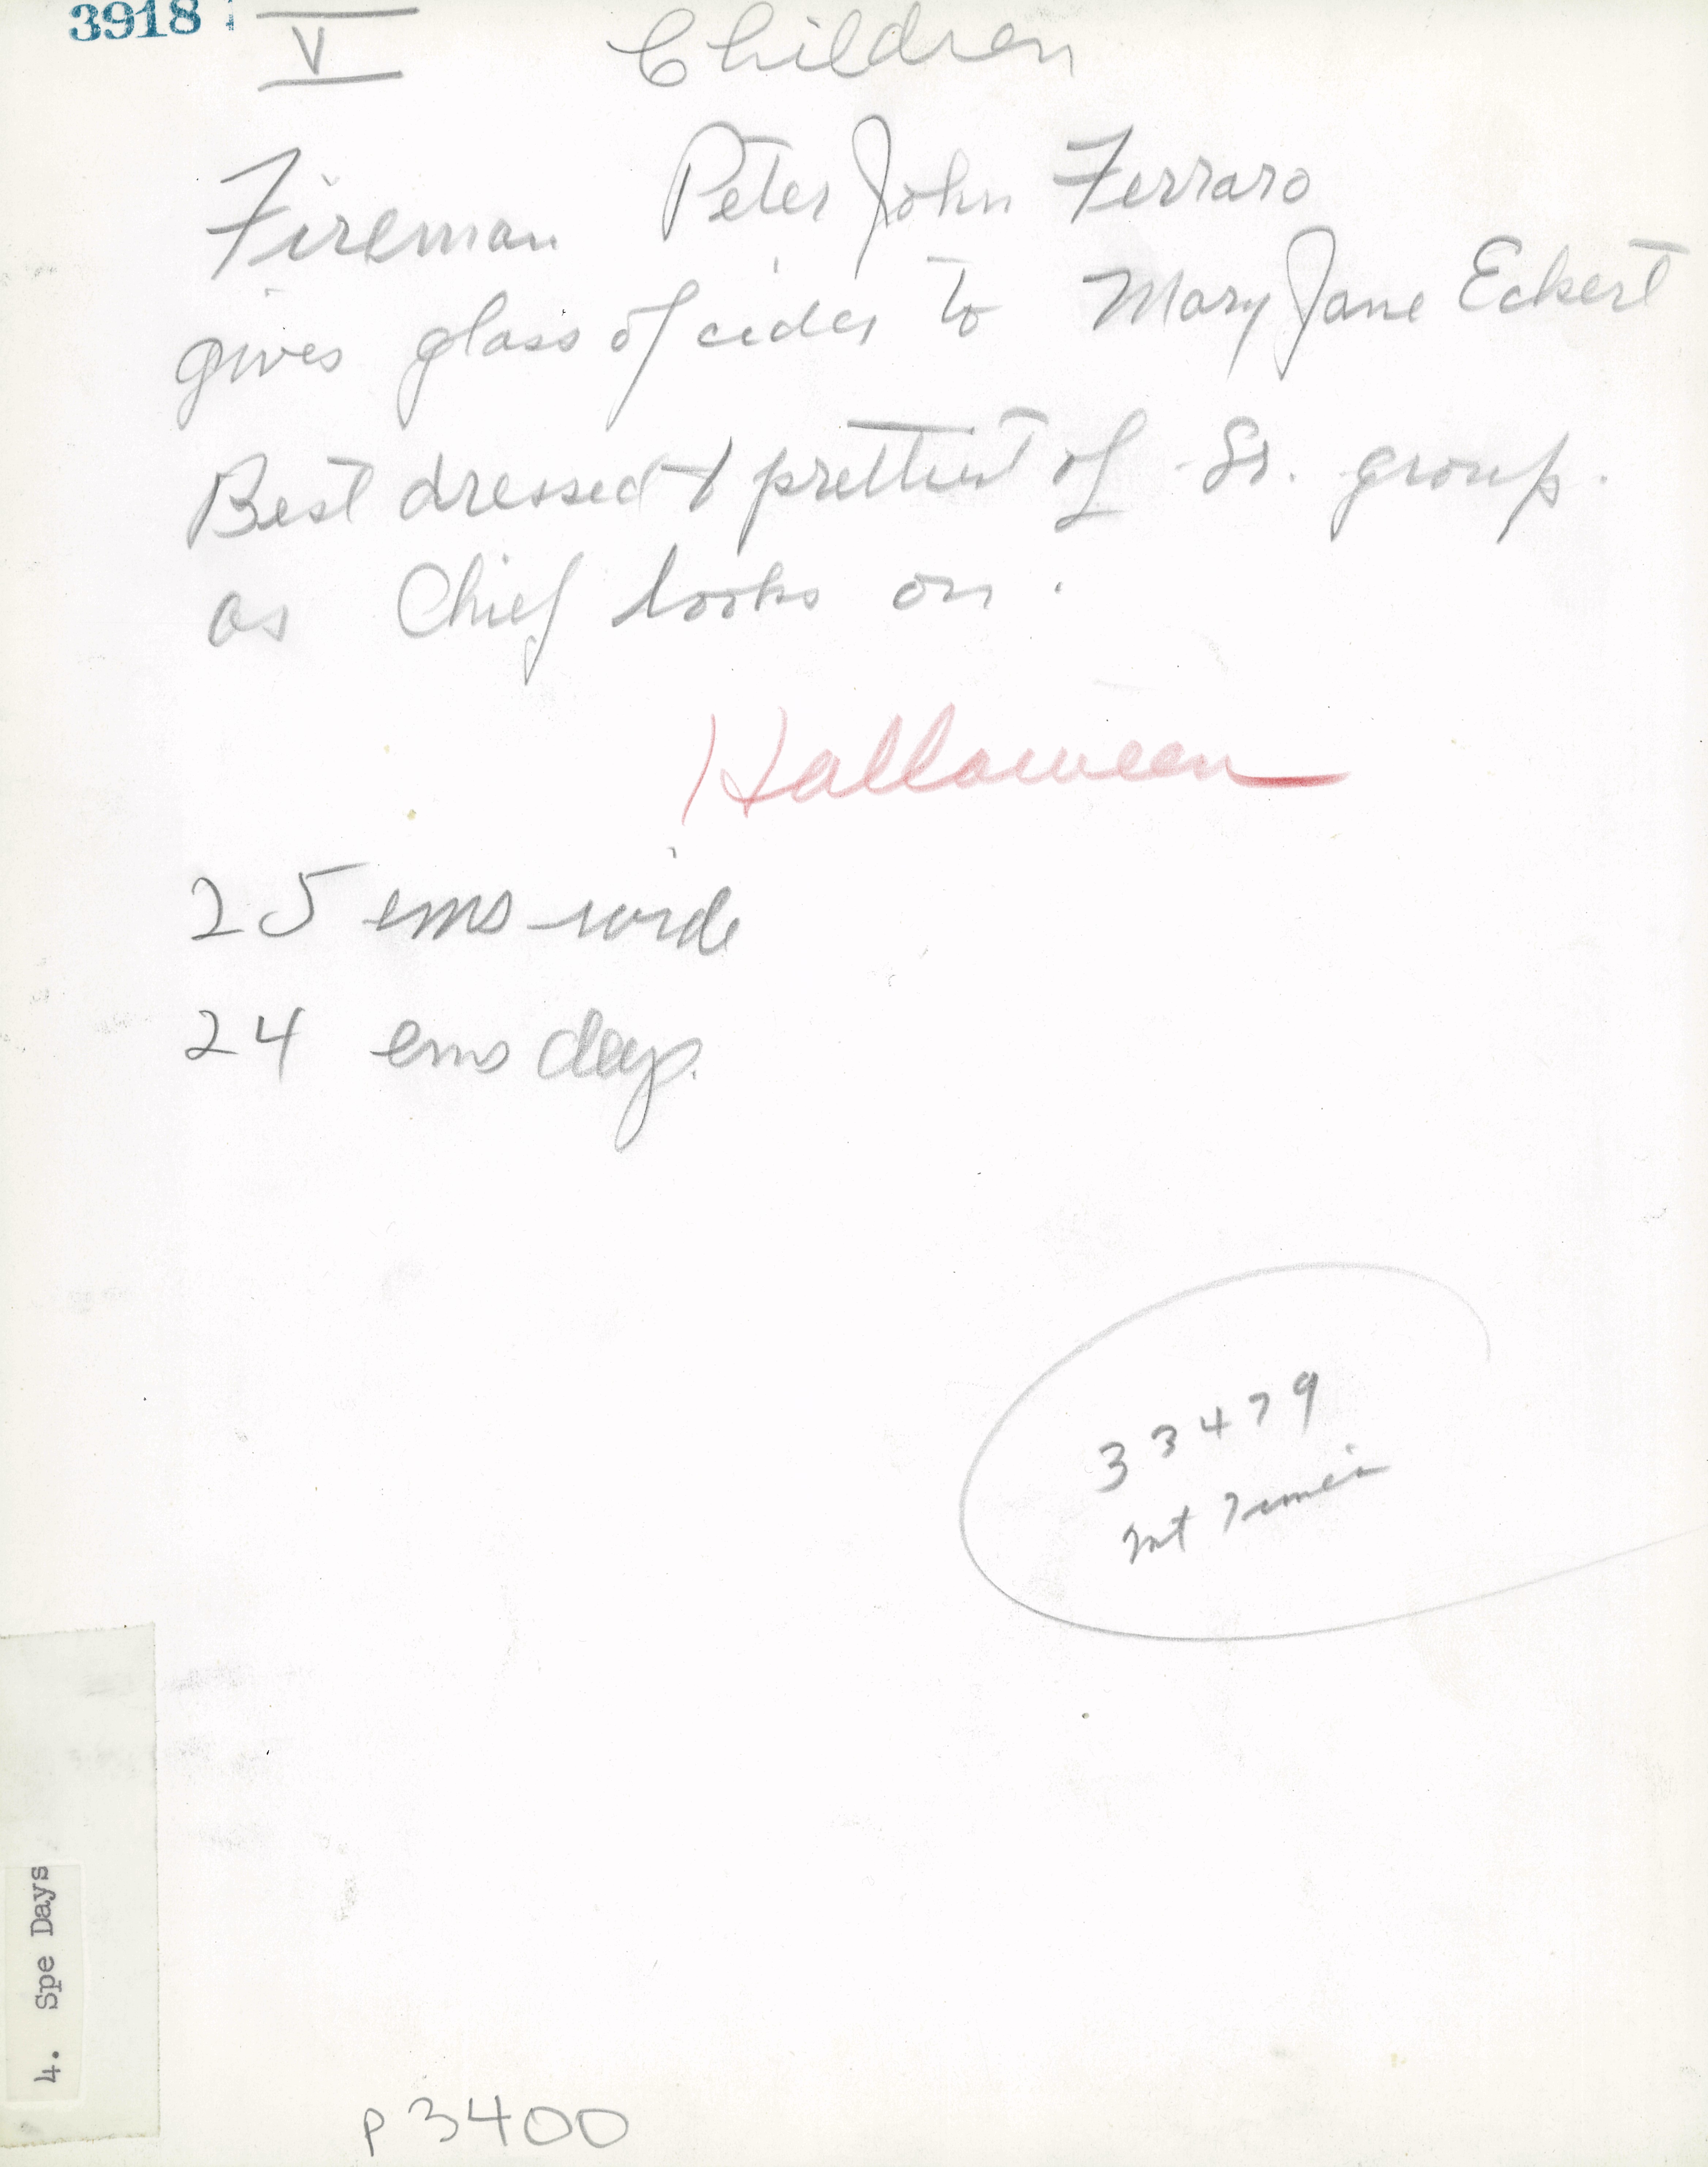 3918
V Children
Fireman Peter John Ferraro
gives glass of cider to Mary Jane Eckert
Best dressed + prettiest of Sr. group.
as Chief looks on.
Halloween
25 ems wide
24 ems deep.
33479
Mt
4. Spe Days
P3400